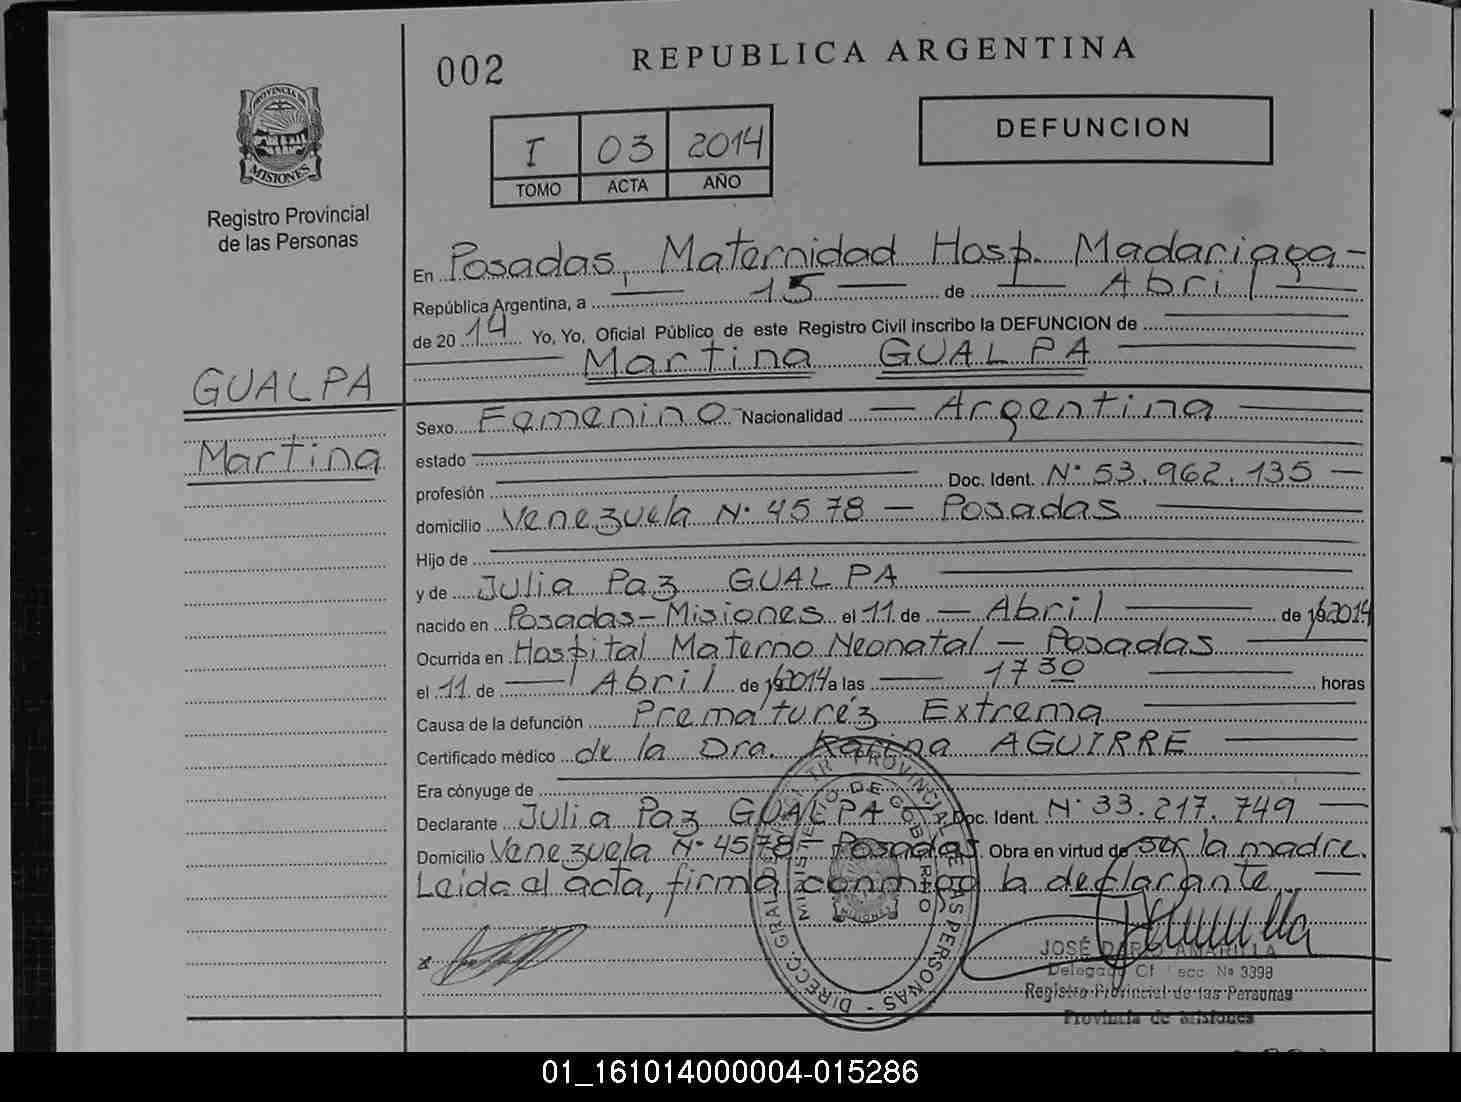 002
REPUBLICA ARGENTINA
PROVINCIA DE
MISIONES
Registro Provincial
de las Personas
I 03 2014
TOMO ACTA AÑO
DEFUNCION
En Posadas, Maternidad Hosp. Madariaga -
República Argentina, a 15 de Abril
de 20 14 Yo, Yo, Oficial Público de este Registro Civil inscribo la DEFUNCION de
Martina GUALPA
GUALPA
Martina
Sexo Femenino Nacionalidad Argentina
estado
profesión Doc. Ident. N° 53.962.135
domicilio Venezuela N° 4578 - Posadas
Hijo de
y de Julia Paz GUALPA
nacido en Posadas - Misiones el 11 de Abril de 2014
Ocurrida en Hospital Materno Neonatal - Posadas
el 11 de Abril de 2014 a las 17 30 horas
Causa de la defunción Prematuréz Extrema
Certificado médico de la Dra. Karina AGUIRRE
Era cónyuge de
Declarante Julia Paz GUALPA - Doc. Ident. N° 33.217.749
Domicilio Venezuela N° 4578 - Posadas. Obra en virtud de ser la madre.
Leída el acta, firma conmigo la declarante.
DIRECC. GRAL. PROVINCIAL DE LAS PERSONAS -
MINISTERIO DE GOBIERNO
MISIONES
JOSÉ DARIO AMARILLA
Delegado Secc. Nº 3398
Registro Provincial de las Personas
Provincia de Misiones
01_161014000004-015286